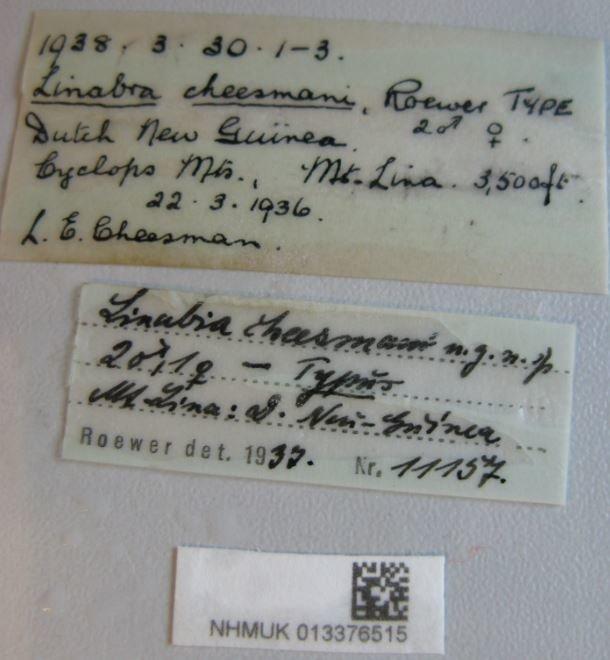 1938 . 3 . 30 . 1-3.
Linabra cheesmani, Roewer TYPE
Dutch New Guinea. 2♂ ♀ .
Cyclops Mts., Mt. Lina. 3,500ft.
22 . 3 . 1936.
L. E. Cheesman.
Linabia cheesmani n. g. n. sp
2♂, 1♀ — Typus
Mt. Lina: D. Neu-Guinea
Roewer det. 1937. Nr. 11157.
NHMUK 013376515